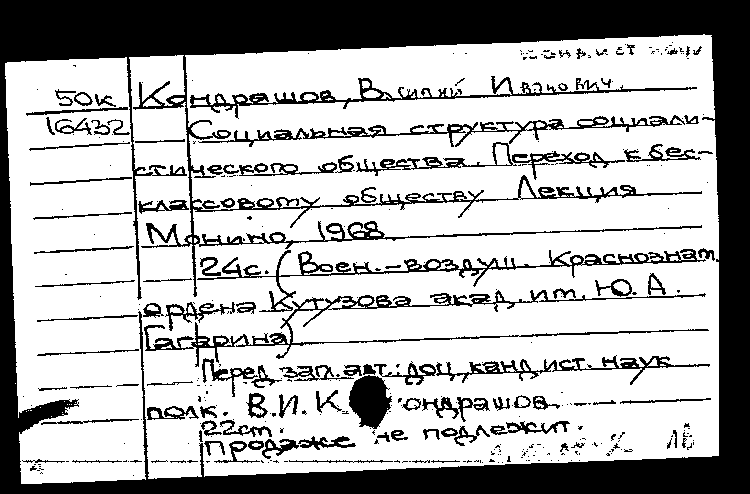 канд. ист. наук
50к Кондрашов, Василий Иванович.
16432 Социальная структура социали-
стического общества. Переход к бес-
классовому обществу Лекция
Монино, 1968.
24с. (Воен.-воздуш. Краснознам.
ордена Кутузова акад. им. Ю. А.
Гагарина)
Перед загл. авт.: доц, канд ист. наук
полк. В.И. Кондрашов.
22см.
Продаже не подлежит.
1б